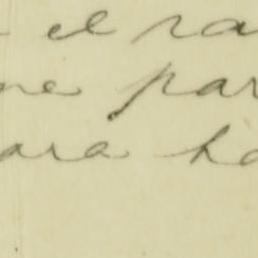 el ra
ne par
ara ha